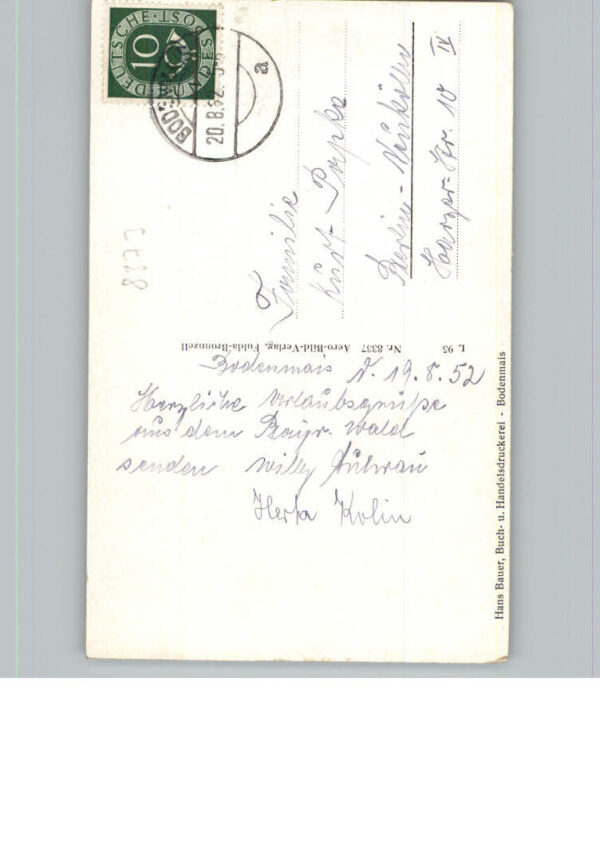 DEUTSCHE·POST
10
BOD
20.8.52
a
Familie
Kurt Papke
Berlin-Neukölln
Harzer-Str. 10 IV
8373
L 95 Nr. 8337 Aero-Bild-Verlag, Fulda-Bronnzell
Bodenmais d. 19.8.52
Herzliche Urlaubsgrüße
aus dem Bayr. Wald
senden Willy
Herta Kolin
Hans Bauer, Buch- u. Handelsdruckerei - Bodenmais